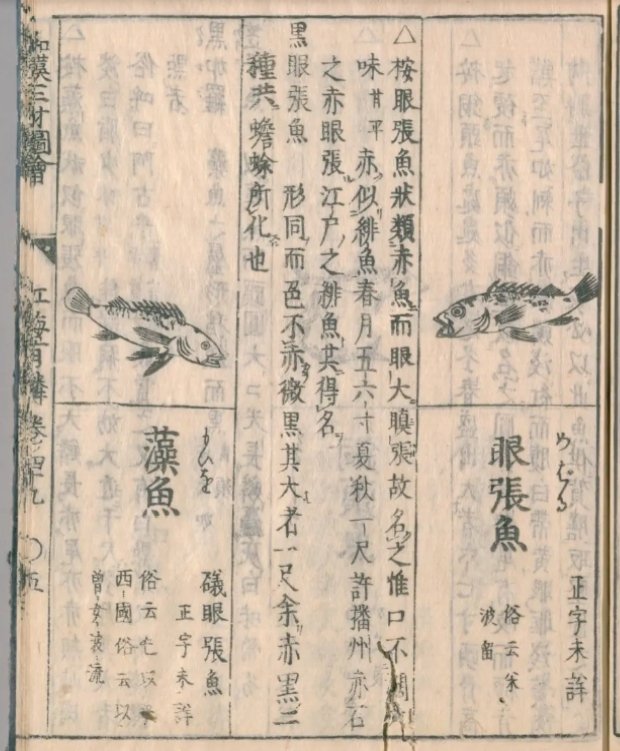 眼張魚
めばる
正字未詳
俗云米
波留
△按眼張魚狀類赤魚而眼大瞋張故名之惟口不
味甘平 赤似緋魚春月五六寸夏秋一尺許播州赤石
之赤眼張江戸之緋魚共得名
黒眼張魚 形同而色不赤微黒其大者一尺余赤黒二
種共蟾蜍所化也
藻魚
もいを
礒眼張魚
正字未詳
俗云毛以乎
西國俗云以
曾女波流
和漢三才圖會
江海有鱗 卷ノ四十九 ○五